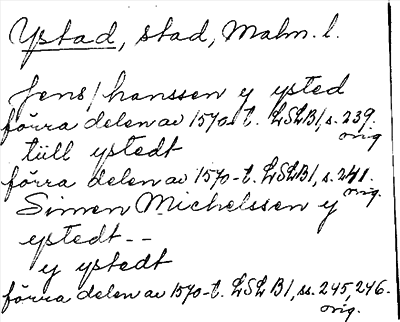 Ystad, stad, Malm. l.
Jens / hanssen y ysted
förra delen av 1570-t. LSLB1, s. 239.
orig
tüll ystedt
förra delen av 1570-t. LSLB1, s. 241.
orig.
Simen Michelssen y
ystedt--
y ystedt
förra delen av 1570-t. LSLB1, ss. 245, 246.
orig.